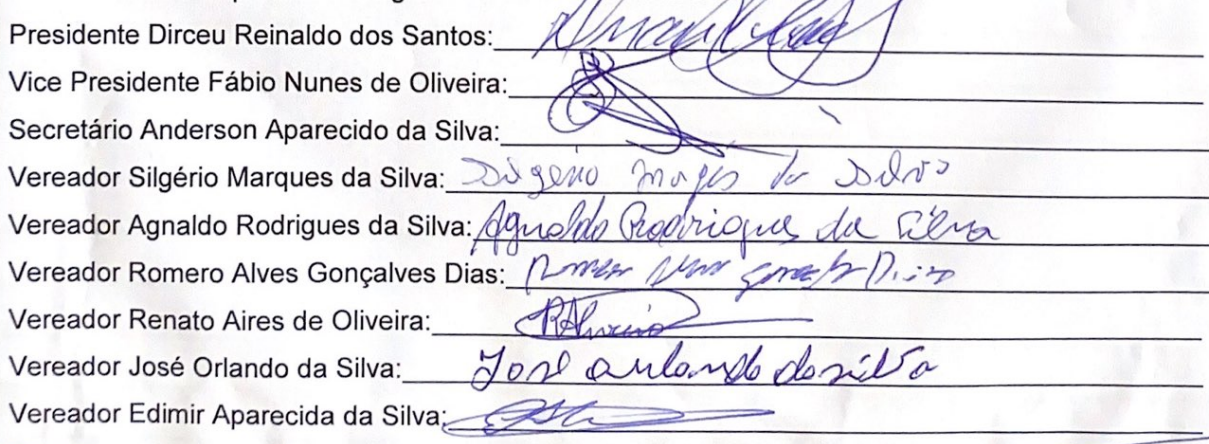 Presidente Dirceu Reinaldo dos Santos:
Vice Presidente Fábio Nunes de Oliveira:
Secretário Anderson Aparecido da Silva:
Vereador Silgério Marques da Silva: da Silva
Vereador Agnaldo Rodrigues da Silva: Agnaldo Rodrigues da Silva
Vereador Romero Alves Gonçalves Dias:
Vereador Renato Aires de Oliveira:
Vereador José Orlando da Silva: José orlando da silva
Vereador Edimir Aparecida da Silva: